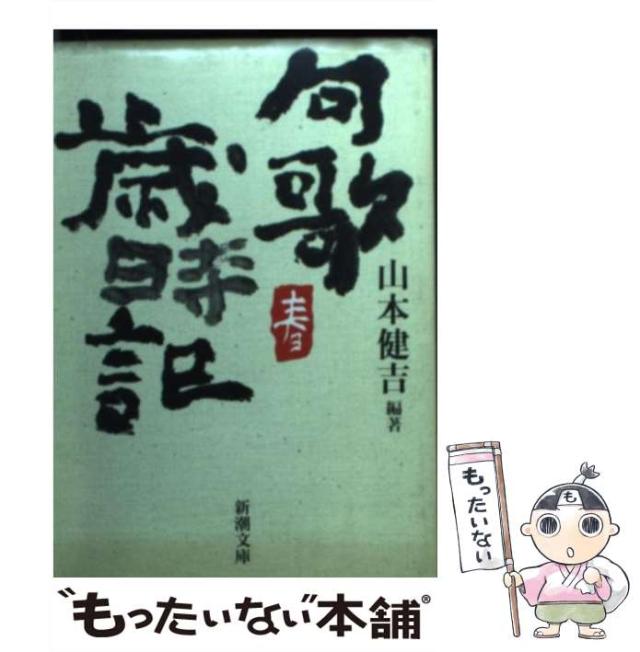 句歌
歳時記
春
山本健吉 編著
新潮文庫
も
もったいない
"もったいない"本舗®